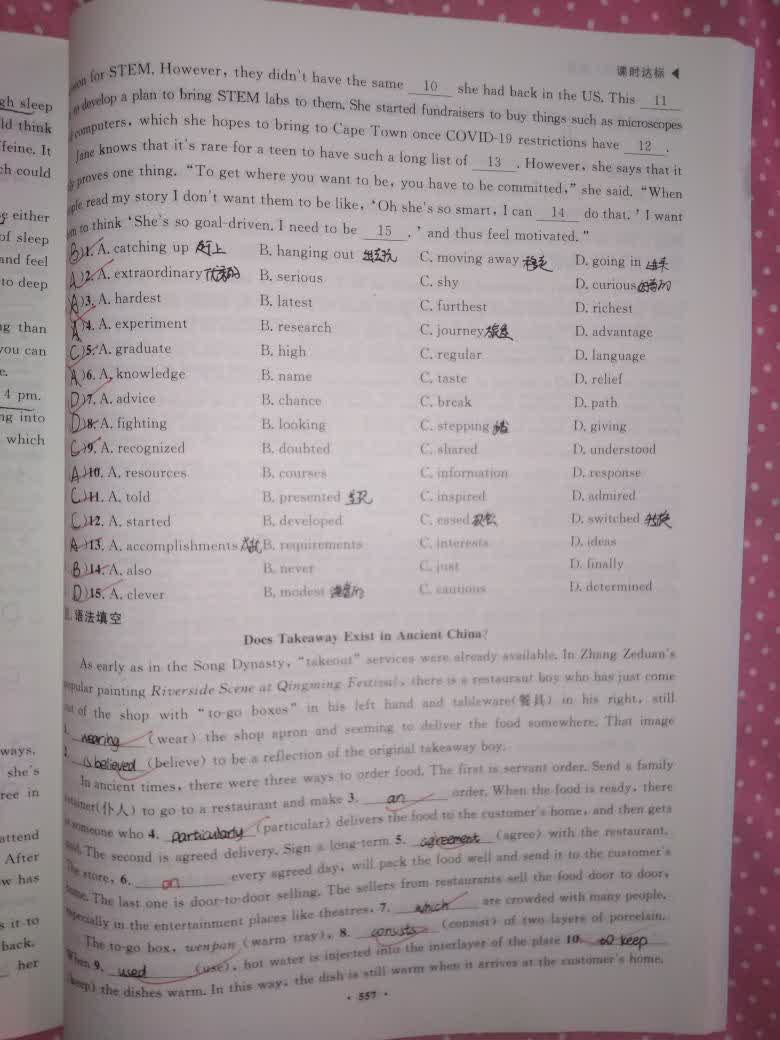 课时达标
gh sleep
ld think
ffeine. It
ch could
either
of sleep
and feel
to deep
ng than
you can
e.
4 pm.
ng into
which
ways.
she's
ree in
attend
After
w has
s it to
back.
her
for STEM. However, they didn't have the same 10 she had back in the US. This 11
to develop a plan to bring STEM labs to them. She started fundraisers to buy things such as microscopes
computers, which she hopes to bring to Cape Town once COVID-19 restrictions have 12 .
Jane knows that it's rare for a teen to have such a long list of 13 . However, she says that it
proves one thing. "To get where you want to be, you have to be committed," she said. "When
read my story I don't want them to be like, 'Oh she's so smart, I can 14 do that. ' I want
to think 'She's so goal-driven. I need to be 15 . ' and thus feel motivated. "
(B)1. A. catching up 赶上 B. hanging out C. moving away D. going in
(A)2. A. extraordinary B. serious C. shy D. curious
(A)3. A. hardest B. latest C. furthest D. richest
(A)4. A. experiment B. research C. journey 旅途 D. advantage
(C)5. A. graduate B. high C. regular D. language
(A)6. A. knowledge B. name C. taste D. relief
(D)7. A. advice B. chance C. break D. path
(D)8. A. fighting B. looking C. stepping D. giving
(C)9. A. recognized B. doubted C. shared D. understood
(A)10. A. resources B. courses C. information D. response
(C)11. A. told B. presented C. inspired D. admired
(C)12. A. started B. developed C. eased D. switched 转换
(A)13. A. accomplishments B. requirements C. interests D. ideas
(B)14. A. also B. never C. just D. finally
(D)15. A. clever B. modest C. cautious D. determined
Ⅱ. 语法填空
Does Takeaway Exist in Ancient China?
As early as in the Song Dynasty, "takeout" services were already available. In Zhang Zeduan's
popular painting Riverside Scene at Qingming Festival, there is a restaurant boy who has just come
out of the shop with "to-go boxes" in his left hand and tableware(餐具) in his right, still
1. wearing (wear) the shop apron and seeming to deliver the food somewhere. That image
2. is believed (believe) to be a reflection of the original takeaway boy.
In ancient times, there were three ways to order food. The first is servant order. Send a family
retainer(仆人) to go to a restaurant and make 3. an order. When the food is ready, there
is someone who 4. particularly (particular) delivers the food to the customer's home, and then gets
paid. The second is agreed delivery. Sign a long-term 5. agreement (agree) with the restaurant.
The store, 6. on every agreed day, will pack the food well and send it to the customer's
home. The last one is door-to-door selling. The sellers from restaurants sell the food door to door,
especially in the entertainment places like theatres, 7. which are crowded with many people.
The to-go box, wenpan (warm tray), 8. consists (consist) of two layers of porcelain.
When 9. used (use), hot water is injected into the interlayer of the plate 10. to keep
(keep) the dishes warm. In this way, the dish is still warm when it arrives at the customer's home.
· 557 ·